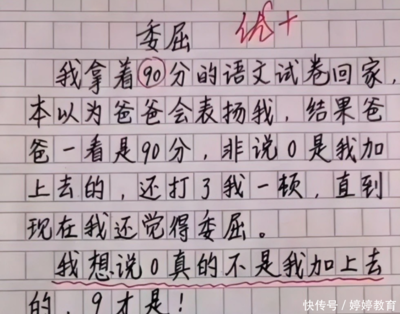 委屈 优+
我拿着90分的语文试卷回家，
本以为爸爸会表扬我，结果爸
爸一看是90分，非说0是我加
上去的，还打了我一顿，直到
现在我还觉得委屈。
我想说0真的不是我加上去
的，9才是！
快传号／婷婷教育